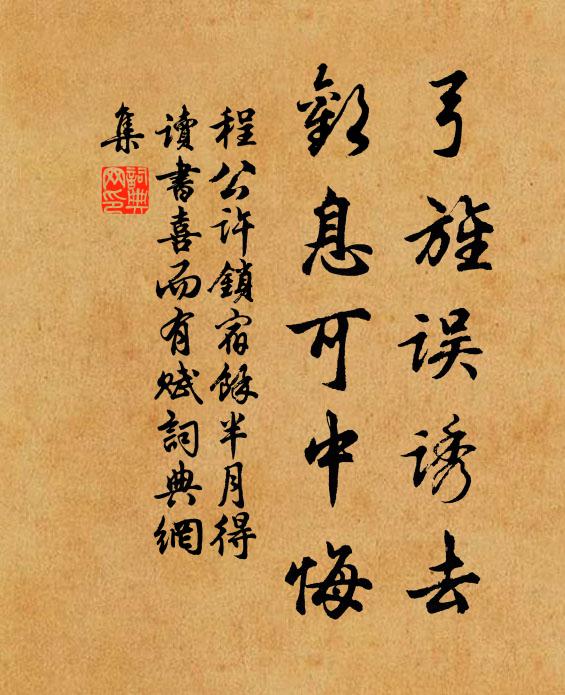 弓旌误诱去
歎息可中悔
程公许鎖宿餘半月得
讀書喜而有赋詞典網
集
詞典网印